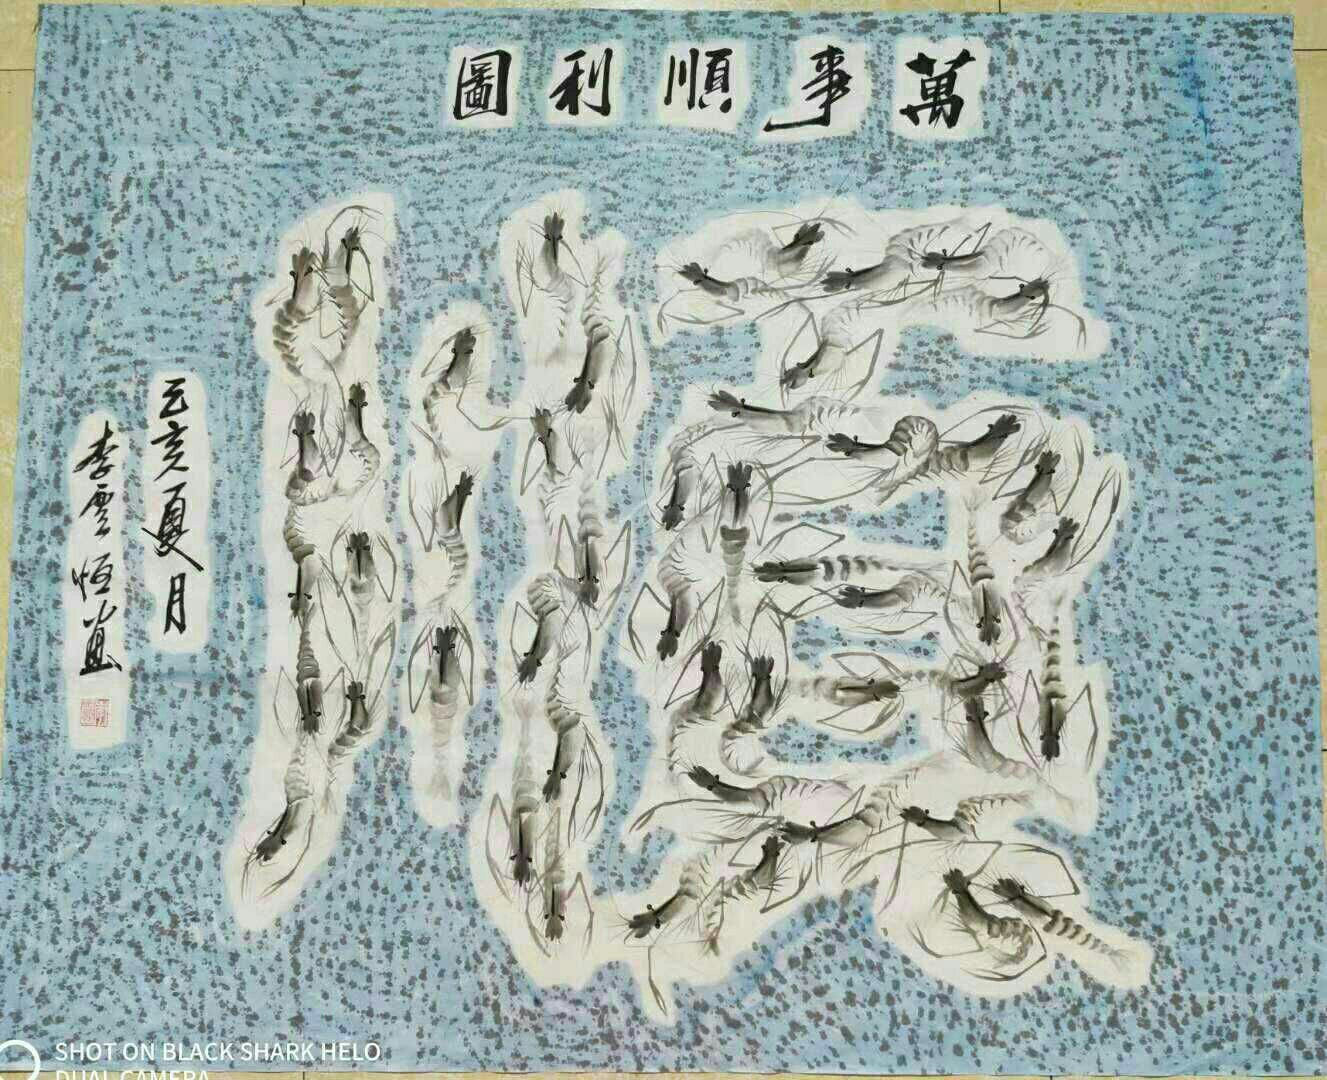 萬事順利圖
順
己亥夏月
李雲恆画
SHOT ON BLACK SHARK HELO
DUAL CAMERA